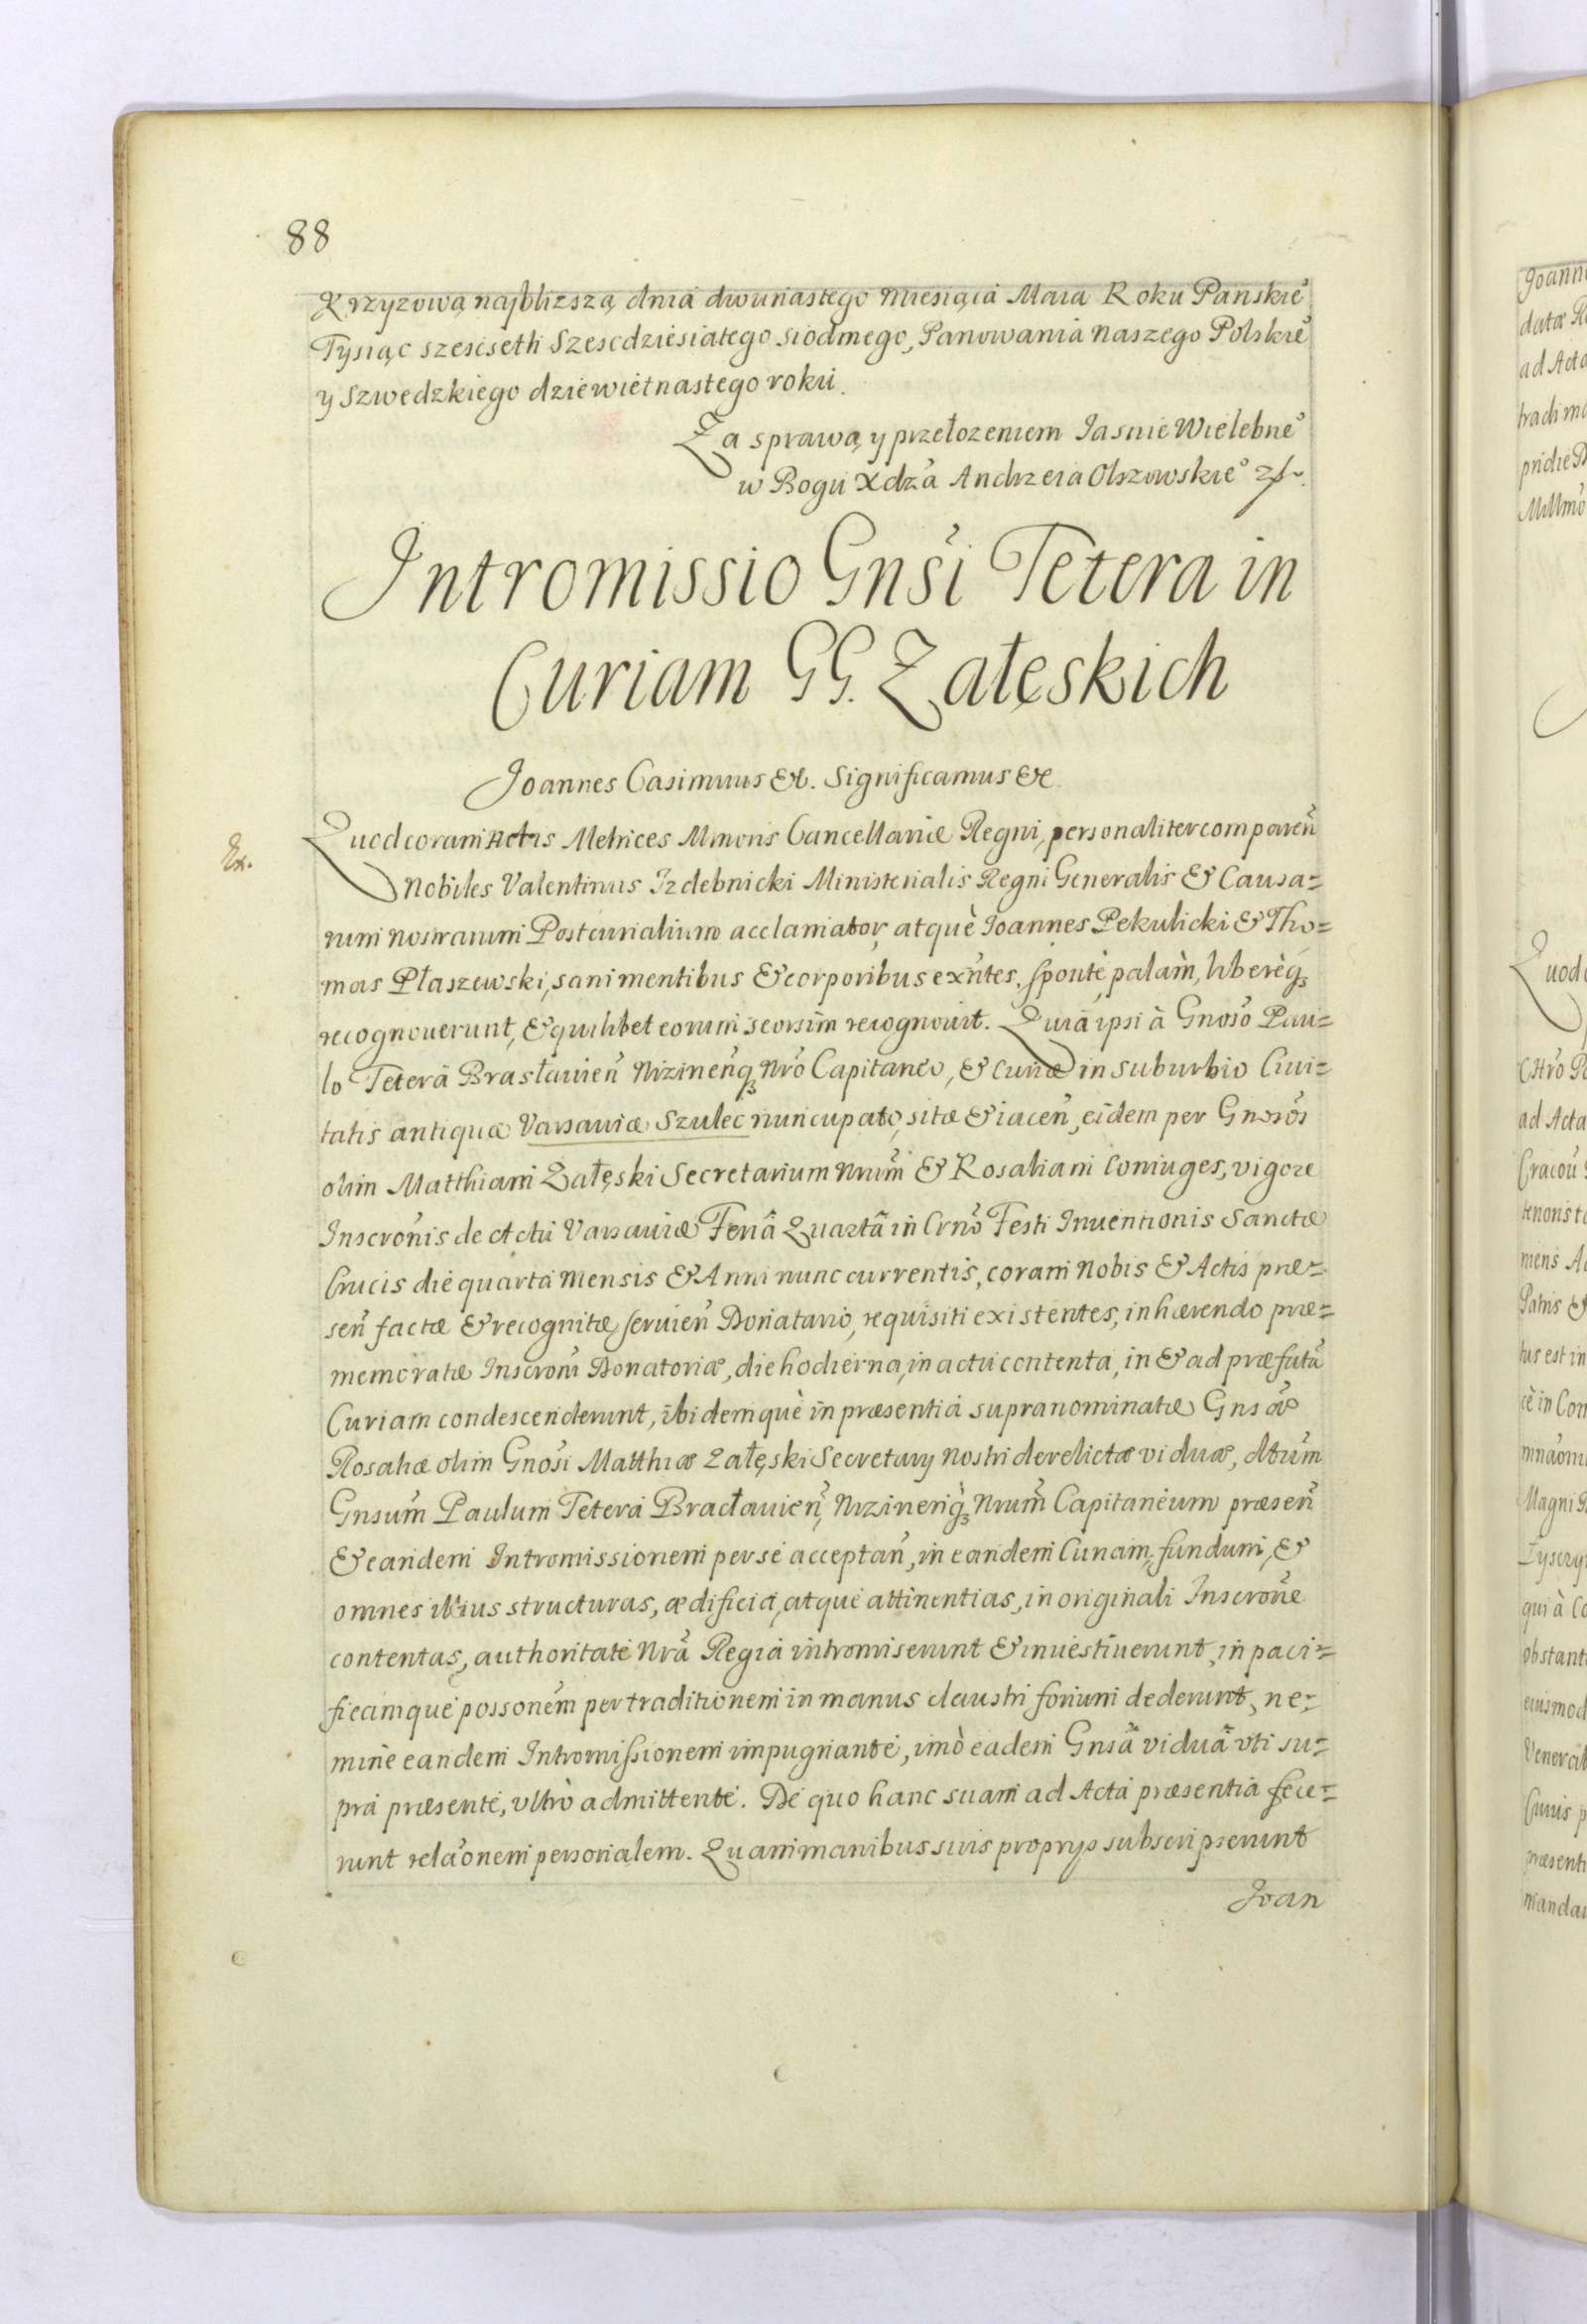 88
Krzyzową najblizszą dnia dwunastego Miesiąca Maia Roku Panskie͛
Tysiąc szescseth Szescdziesiatego siodmego, Panowania naszego Polskie͛
y Szwedzkiego dziewietnastego roku.
Za sprawą y przełozeniem Jasnie Wielebne͛
w Bogu Xdza Andrzeia Olszowskie͛
Intromissio Gnsi Tetera in
Curiam GG. Załęskich
Joannes Casimirus &c. Significamus &c.
Quod coram Actis Metrices Minoris Cancellariæ Regni, personaliter comparen̄
Ex.
Nobiles Valentinus Izdebnicki Ministerialis Regni Generalis & Causa=
rum nostrarum Postcurialium acclamator, atquè Joannes Pekulicki & Tho=
mas Płaszewski, sani mentibus & corporibus exn̄tes, spontè palàm, liberèq;
recognouerunt, & quilibet eorum seorsim recognouit. Quia ipsi à Gnoso Pau=
lo Tetera Brasłauien̄ Nizinenq; Nr̄o Capitaneo, & Curiæ in suburbio Ciui=
tatis antiquæ Varsauiæ Szulec nuncupato, sitæ & iacen̄, eidem per Gnosos
olim Matthiam Załęski Secretarium Nrum̄ & Rosaliam Coniuges, vigore
Inscronis de Actu Varsauiæ Feriâ Quartâ in Crn̄o Festi Inuentionis Sanctæ
Crucis die quarta Mensis & Anni nunc currentis, coram Nobis & Actis præ=
sen̄ factæ & recognitæ, seruien̄ Donatario, requisiti existentes, inhærendo præ=
memoratæ Inscroni Donatoriæ, die hodierna, in actu contenta, in & ad præfatā
Curiam condescenderunt, ibidemquè in præsentia supranominatæ Gnsæ
Rosaliæ olim Gnosi Matthiæ Załęski Secretarij Nostri derelictæ viduæ, dtum̄
Gnsum̄ Paulum Tetera Bracłauien̄, Nizinenq; Nrum̄ Capitaneum præsen̄
& eandem Intromissionem per se acceptan̄, in eandem Curiam, fundum, &
omnes illius structuras, ædificia, atque attinentias, in originali Inscrone
contentas, authoritate Nrā Regia intromiserunt & inuestiuerunt, in paci=
ficamque possonem per traditionem in manus claustri forium dederunt, ne=
mine eandem Intromissionem impugnante, imò eadem Gnsâ viduâ vti su=
pra præsente, vltrò admittente. De quo hanc suam ad Acta præsentia fece=
runt relaonem personalem. Quam manibus suis proprijs subscripserunt
Joan